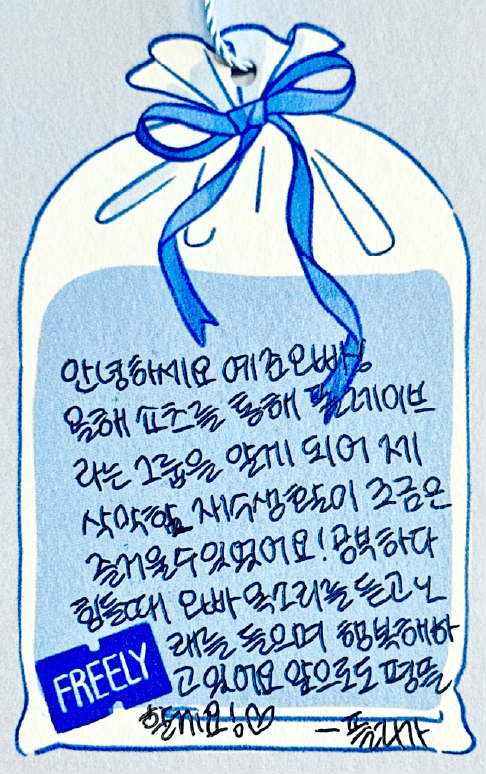 안녕하세요 예준오빠!
올해 쇼츠를 통해 플레이브
라는 그룹을 알게 되어 제
삭막한 재수생활이 조금은
즐거울수있었어요! 공부하다
힘들때 오빠 목소리를 듣고 노
래를 들으며 행복해하
고 있어요 앞으로도 평플
할게요!♡
FREELY